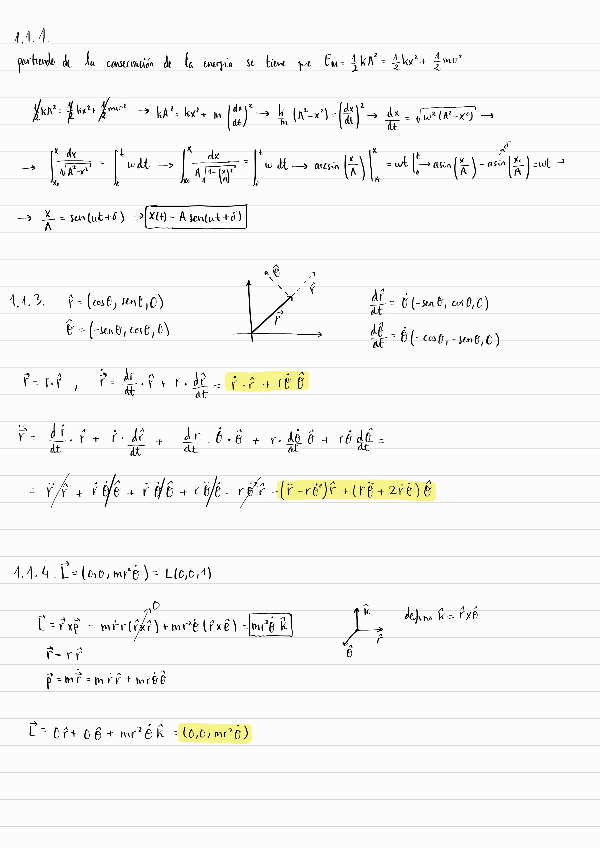 1.1.1.
partiendo de la conservación de la energía se tiene que E_M = 1/2 kA² = 1/2 kx² + 1/2 mv²
1/2 kA² = 1/2 kx² + 1/2 mv² → kA² = kx² + m (dx/dt)² → k/m (A² - x²) = (dx/dt)² → dx/dt = √(w²(A² - x²)) →
→ ∫_{x₀}^{x} dx/√(A² - x²) = ∫^{t} w dt → ∫_{x₀}^{x} dx/(A√(1 - (x/A)²)) = ∫^{t} w dt → arcsin (x/A) |^{x} = wt |^{t} → asin (x/A) - asin (x₀/A) = wt →
→ x/A = sen(wt + δ) → x(t) = A sen(wt + δ)
1.1.3. r̂ = (cosθ, senθ, 0) θ̂ r̂ r⃗ dr̂/dt = θ̇ (-senθ, cosθ, 0)
θ̂ = (-senθ, cosθ, 0) dθ̂/dt = θ̇ (-cosθ, -senθ, 0)
r⃗ = r · r̂ , r⃗̇ = dr/dt · r̂ + r · dr̂/dt = ṙ · r̂ + rθ̇ θ̂
r⃗̈ = dṙ/dt · r̂ + ṙ · dr̂/dt + dr/dt · θ̇ · θ̂ + r · dθ̇/dt θ̂ + rθ̇ dθ̂/dt =
= r̈ r̂ + ṙ θ̇ θ̂ + ṙ θ̇ θ̂ + rθ̈ θ̂ - rθ̇² r̂ = (r̈ - rθ̇²) r̂ + (rθ̈ + 2ṙθ̇) θ̂
1.1.4. L⃗ = (0,0, mr²θ̇) = L(0,0,1)
L⃗ = r⃗ x p⃗ = mṙr (r̂ x r̂) 0 + mr²θ̇ (r̂ x θ̂) = mr²θ̇ k̂ k̂ r̂ θ̂ defino k̂ = r̂ x θ̂
r⃗ = r r̂
p⃗ = mr⃗̇ = mṙ r̂ + mrθ̇ θ̂
L⃗ = 0 r̂ + 0 θ̂ + mr²θ̇ k̂ = (0,0, mr²θ̇)